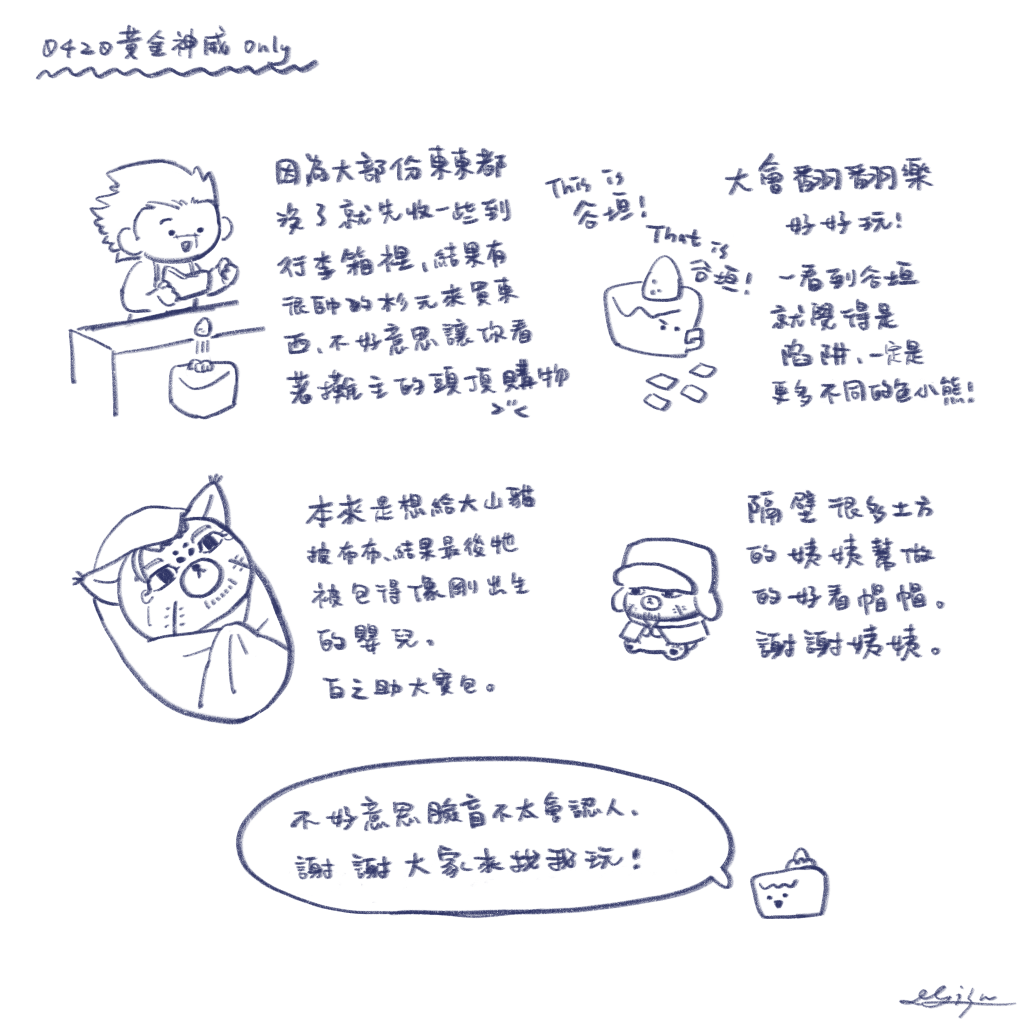 0420黃金神威 only
因為大部份東東都
沒了就先收一些到
行李箱裡,結果有
很帥的杉元來買東
西、不好意思讓你看
著攤主的頭頂購物
This is
谷垣!
That is
谷垣!
大會翻翻樂
好好玩!
一看到谷垣
就覺得是
陷阱、一定是
更多不同的色小熊!
本來是想給大山貓
披布布、結果最後牠
被包得像剛出生
的嬰兒。
百之助大寶包。
隔壁很多土方
的姨姨幫做
的好看帽帽。
謝謝姨姨。
不好意思臉盲不太會認人、
謝謝大家來找我玩!